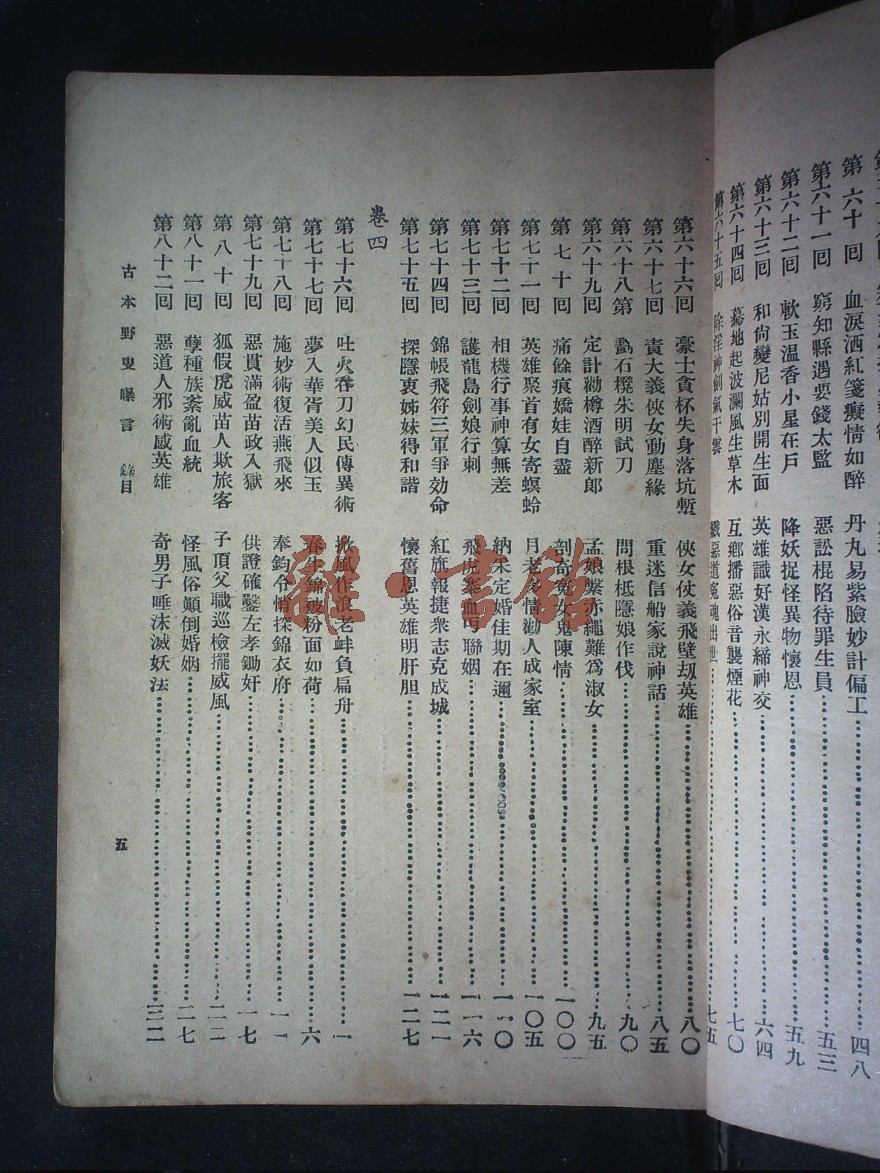 第六十回 血淚洒紅箋癡情如醉 丹丸易紫臉妙計偏工 四八
第六十一回 窮知縣遇要錢太監 惡訟棍陷待罪生員 五三
第六十二回 軟玉溫香小星在戶 降妖捉怪異物懷恩 五九
第六十三回 和尙變尼姑別開生面 英雄識好漢永締神交 六四
第六十四回 驀地起波瀾風生草木 互鄉播惡俗音襲煙花 七〇
第六十五回 除淫神劍氣干雲 殲惡道冤魂出世 七五
第六十六回 豪士貪杯失身落坑塹 俠女仗義飛壁刼英雄 八〇
第六十七回 責大義俠女動塵緣 重迷信船家說神話 八五
第六十八第 斲石櫈朱明試刀 問根柢隱娘作伐 九〇
第六十九回 定計勸樽酒醉新郎 孟娘繫赤繩難爲淑女 九五
第七十回 痛餘痕嬌娃自盡 剖奇冤女鬼陳情 一〇〇
第七十一回 英雄聚首有女寄螟蛉 月老多情勸人成家室 一〇五
第七十二回 相機行事神算無差 納采定婚佳期在邇 一一〇
第七十三回 護龍島劍娘行刺 飛虎寨血丐聯姻 一一六
第七十四回 錦帳飛符三軍爭効命 紅旗報捷衆志克成城 一二一
第七十五回 探隱衷姊妹得和諧 懷舊恩英雄明肝胆 一二七
卷四
第七十六回 吐火吞刀幻民傳異術 掀風作浪老蚌負扁舟 一
第七十七回 夢入華胥美人似玉 春生錦被粉面如荷 六
第七十八回 施妙術復活燕飛來 奉鈞令情探錦衣府 一一
第七十九回 惡貫滿盈苗政入獄 供證確鑿左孝鋤奸 一七
第八十回 狐假虎威苗人欺旅客 子頂父職巡檢擺威風 二二
第八十一回 孽種族紊亂血統 怪風俗顚倒婚姻 二七
第八十二回 惡道人邪術感英雄 奇男子唾沫滅妖法 三二
古本野叟曝言 錄目
五